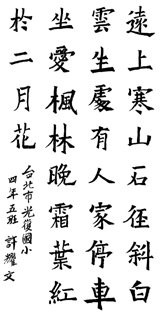 遠上寒山石徑斜白
雲生處有人家停車
坐愛楓林晚霜葉紅
於二月花
台北市光復國小
四年五班 許耀文